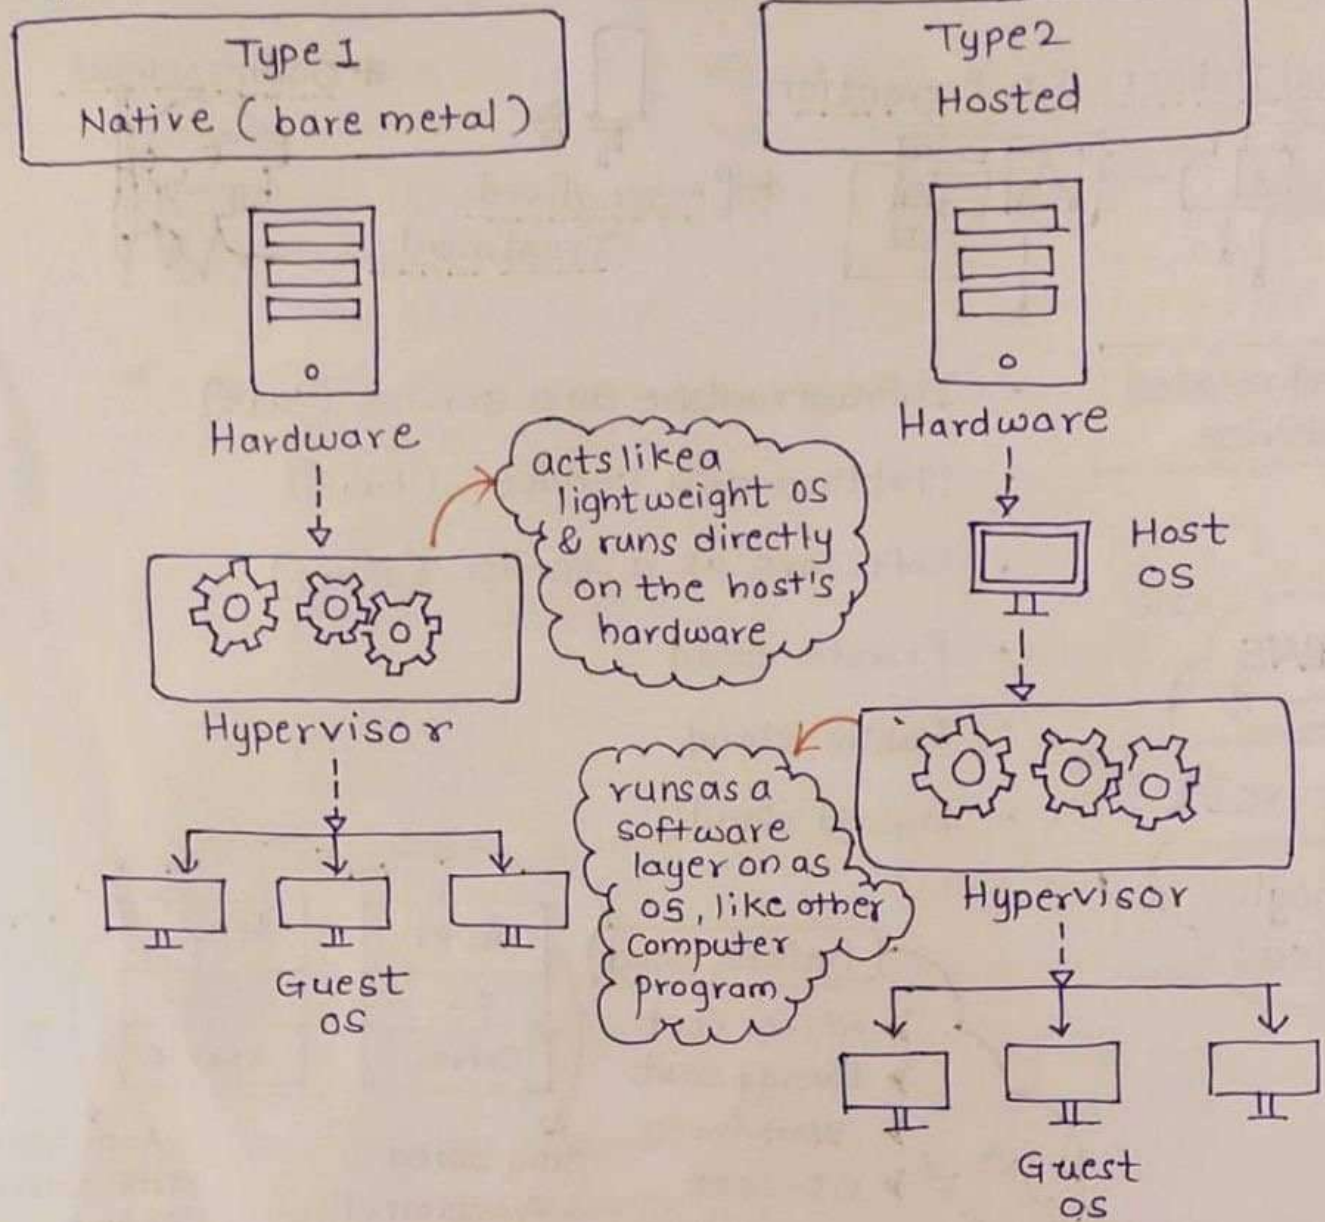 Type 1
Native (bare metal)
Type 2
Hosted
Hardware
acts like a
lightweight OS
& runs directly
on the host's
hardware
Hypervisor
Guest
OS
Hardware
Host
OS
runs as a
software
layer on as
OS, like other
computer
program
Hypervisor
Guest
OS